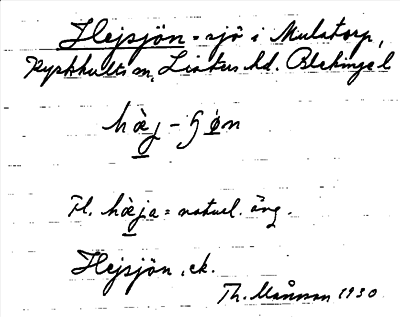 Hejsjön = sjö i Mulatorp,
Ryskhults m, Listers hd. Blekinge l
hœj - ʃøn
Tl. hœja = naturl. äng.
Hejsjön, ek.
Th. Månsson 1930